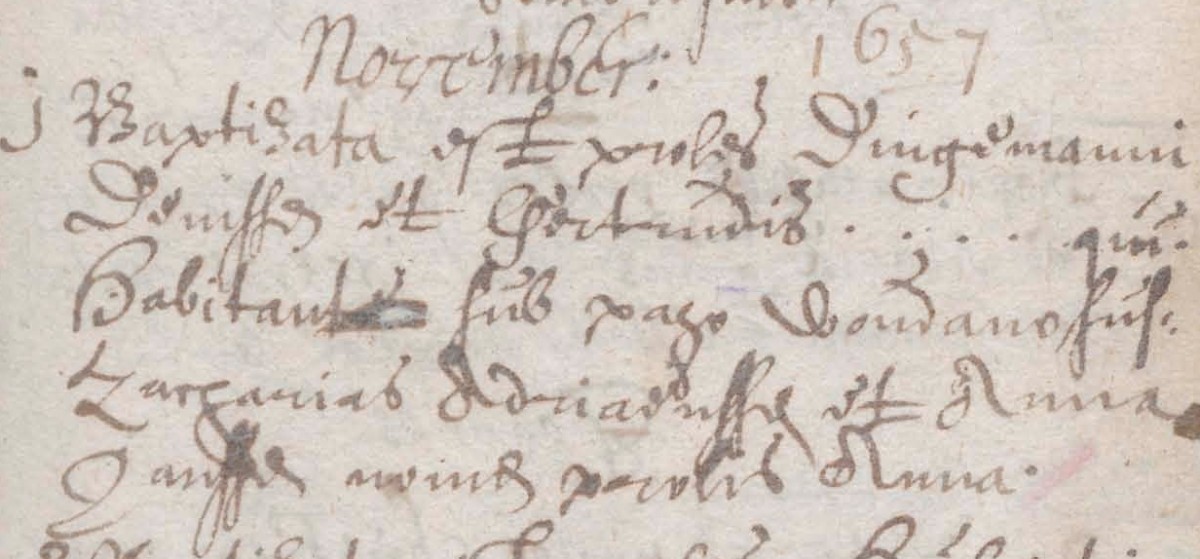 November: 1657
j Baptizata est proles Dingemanni
Denissen et Gertrudis . . . . . qui
habitant sub pago Woudano sus:
Zacharias Adriaenssen et Anna
Janssen nomen prolis Anna.